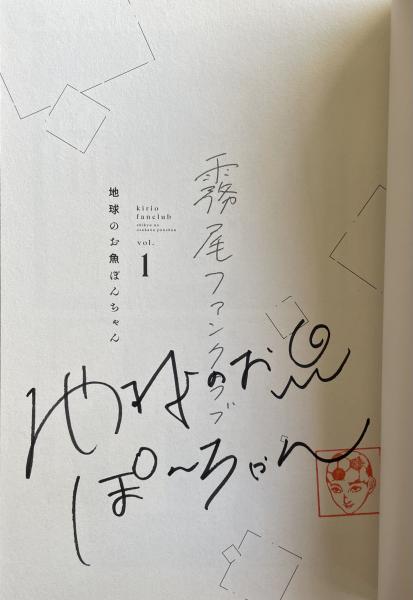 霧尾ファンクラブ
kirio
fanclub
chikyu no
osakana ponchan
vol.
1
地球のお魚ぽんちゃん
地球のお魚
ぽんちゃん